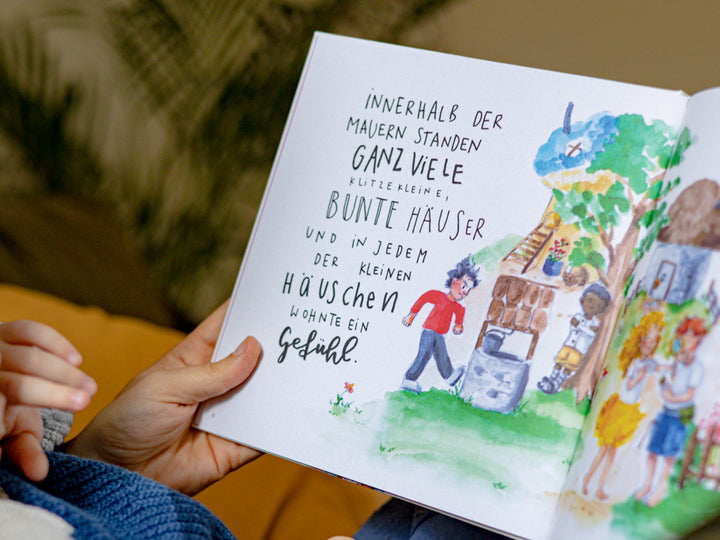 INNERHALB DER
MAUERN STANDEN
GANZ VIELE
KLITZEKLEINE,
BUNTE HÄUSER
UND IN JEDEM
DER KLEINEN
HÄUSCHEN
WOHNTE EIN
Gefühl.